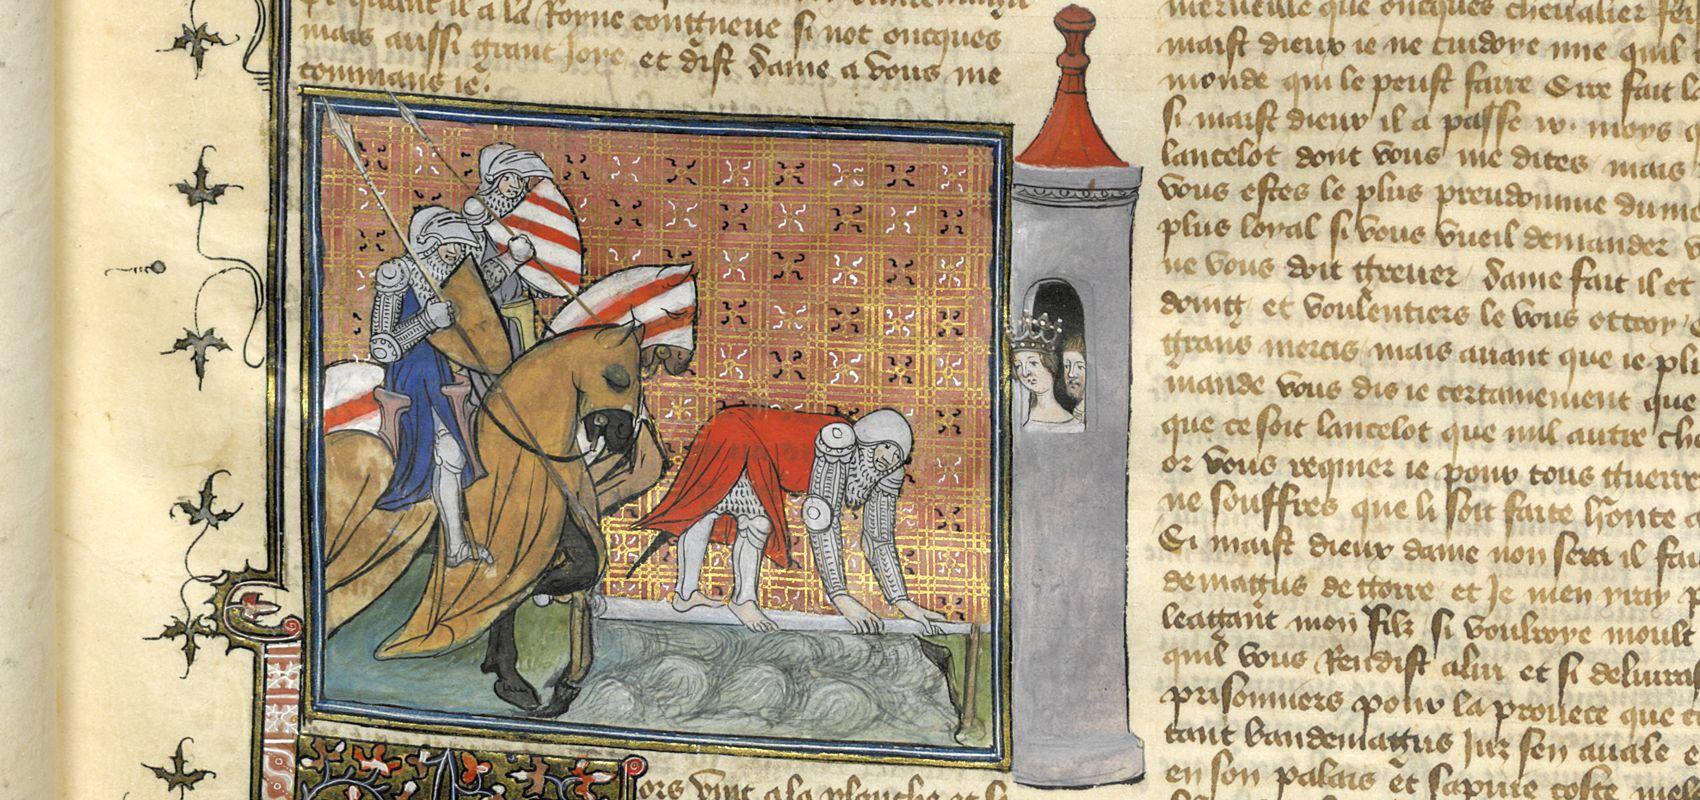 et quant il a la Royne congneue si not oncques
mais aussi grant Joye et dist dame a vous me
commans ie.
ors vint a la planche et
merueille que oncques cheualier
maist dieux ie ne cuidoye mie quil
monde qui le peust faire Sire fait
si maist dieux il a passe moys
lancelot dont vous me dites mais
vous estes le plus preudomme du
plus loyal si vous vueil demander
ne vous doit greuer dame fait il et
doing et voulentiers le vous ottroy
grans mercis mais auant que ie
mande vous dis ie certainement que
que ce soit lancelot que nul autre
or vous requier ie pour tous guerre
ne souffres que li soit faite honte a
Si maist dieux dame non sera il
demagus de gorre et Je men yray
leagant mon filz si vouldroye moult
quil vous Rendist a lui et si deliuras
prisonniers pour la prouece que
tant bandemagus Jus sen auale
en son palais et sapuie coste